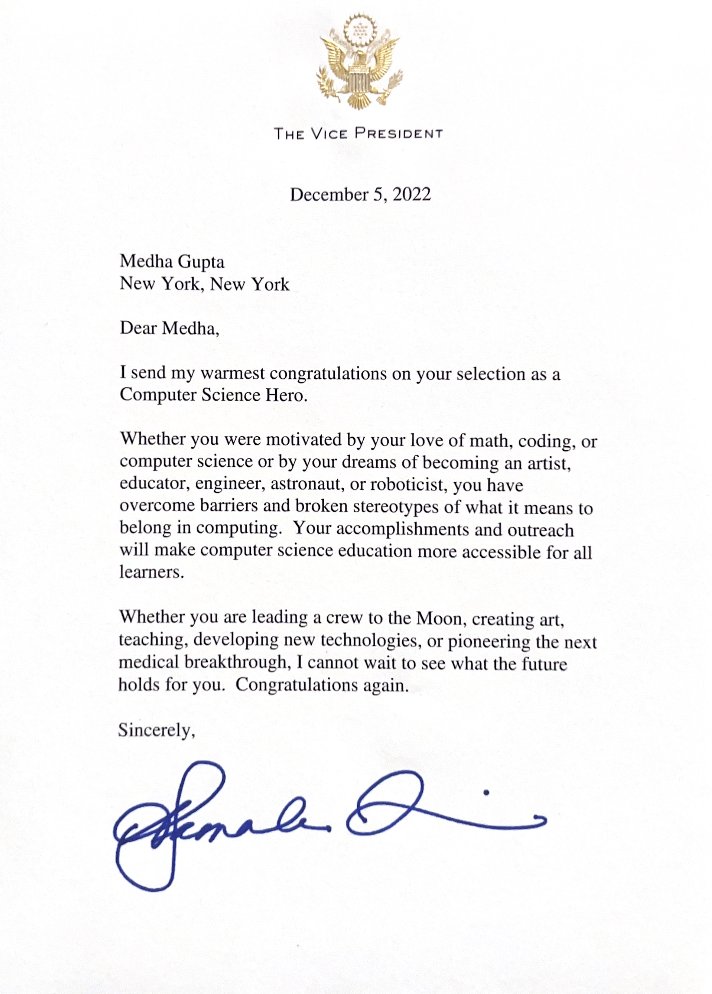 THE VICE PRESIDENT
December 5, 2022
Medha Gupta
New York, New York
Dear Medha,
I send my warmest congratulations on your selection as a
Computer Science Hero.
Whether you were motivated by your love of math, coding, or
computer science or by your dreams of becoming an artist,
educator, engineer, astronaut, or roboticist, you have
overcome barriers and broken stereotypes of what it means to
belong in computing.  Your accomplishments and outreach
will make computer science education more accessible for all
learners.
Whether you are leading a crew to the Moon, creating art,
teaching, developing new technologies, or pioneering the next
medical breakthrough, I cannot wait to see what the future
holds for you.  Congratulations again.
Sincerely,